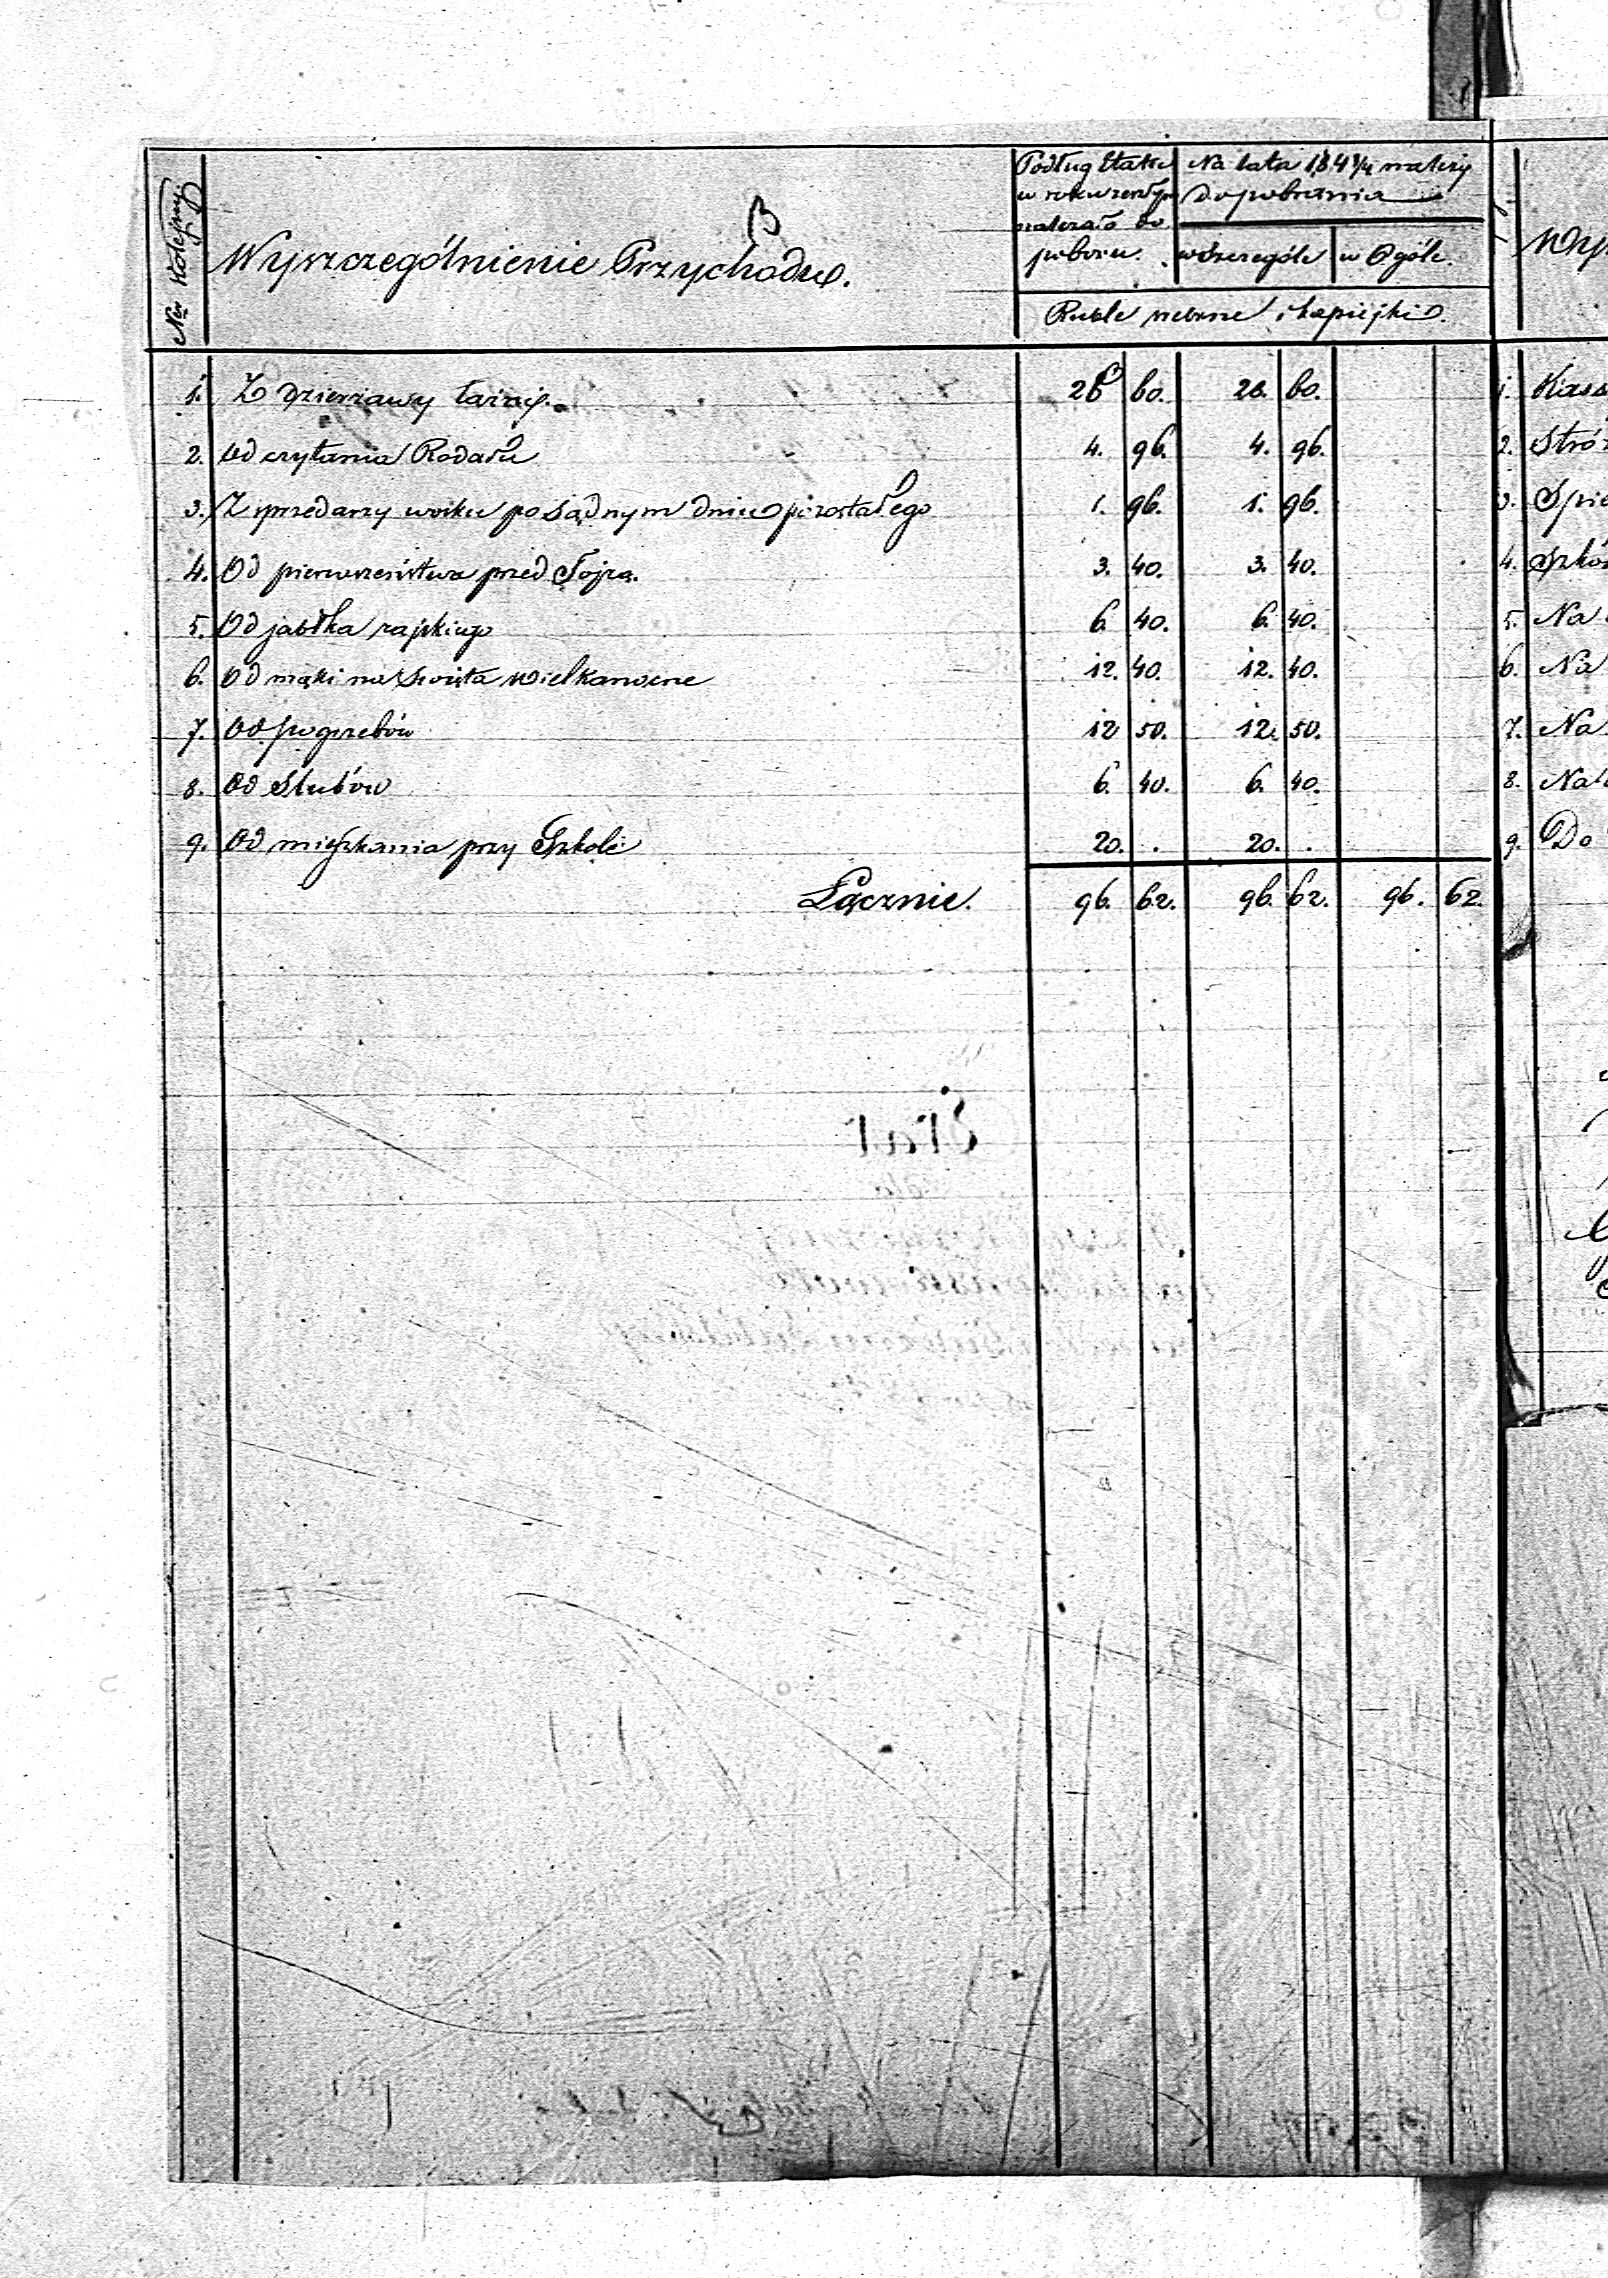 Nr Kolejny
B
Wyszczególnienie Przychodu.
Podług Etatu
w roku zeszłym
należało do
poboru.
Na lata 184 należy
do pobrania
w szczególe
w Ogóle.
Ruble srebrne i kapiejki.
1. Z dzierżawy łaźni. 28 60. 28. 60.
2. Od czytania Rodału 4. 96. 4. 96.
3. Z sprzedaży wosku po Sądnym dniu pozostałego 1. 96. 1. 96.
4. Od pierwszeństwa przed Tojrą. 3. 40. 3. 40.
5. Od jabłka rajskiego 6. 40. 6. 40.
6. Od mąki na Święta wielkanocne 12. 40. 12. 40.
7. Od pogrzebów 12 50. 12. 50.
8. Od Slubów 6. 40. 6. 40.
9. Od mieszkania przy Szkole 20. . 20. .
Łącznie. 96. 62. 96. 62. 96. 62.
1.
2.
3.
4.
5. Na
6. Na
7. Na
8. Na
9. Do